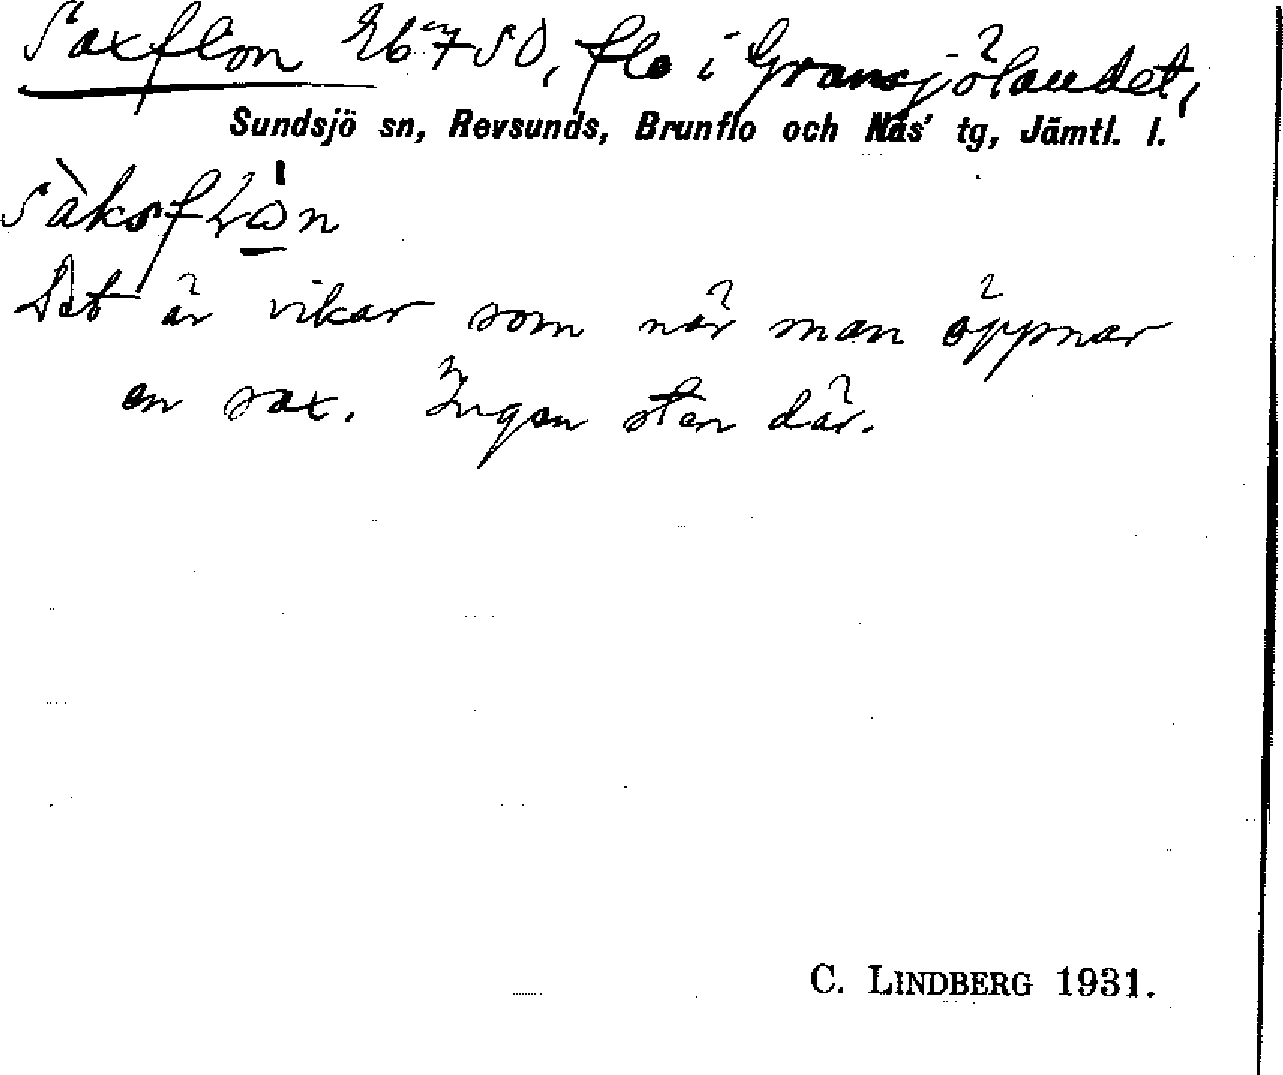 Saxflon Eb 7 SO, flo i Gransjölandet,
Sundsjö sn, Revsunds, Brunflo och Näs' tg, Jämtl. l.
Det är vikar som när man öppnar
en sax. Ingen sten där.
C. LINDBERG 1931.